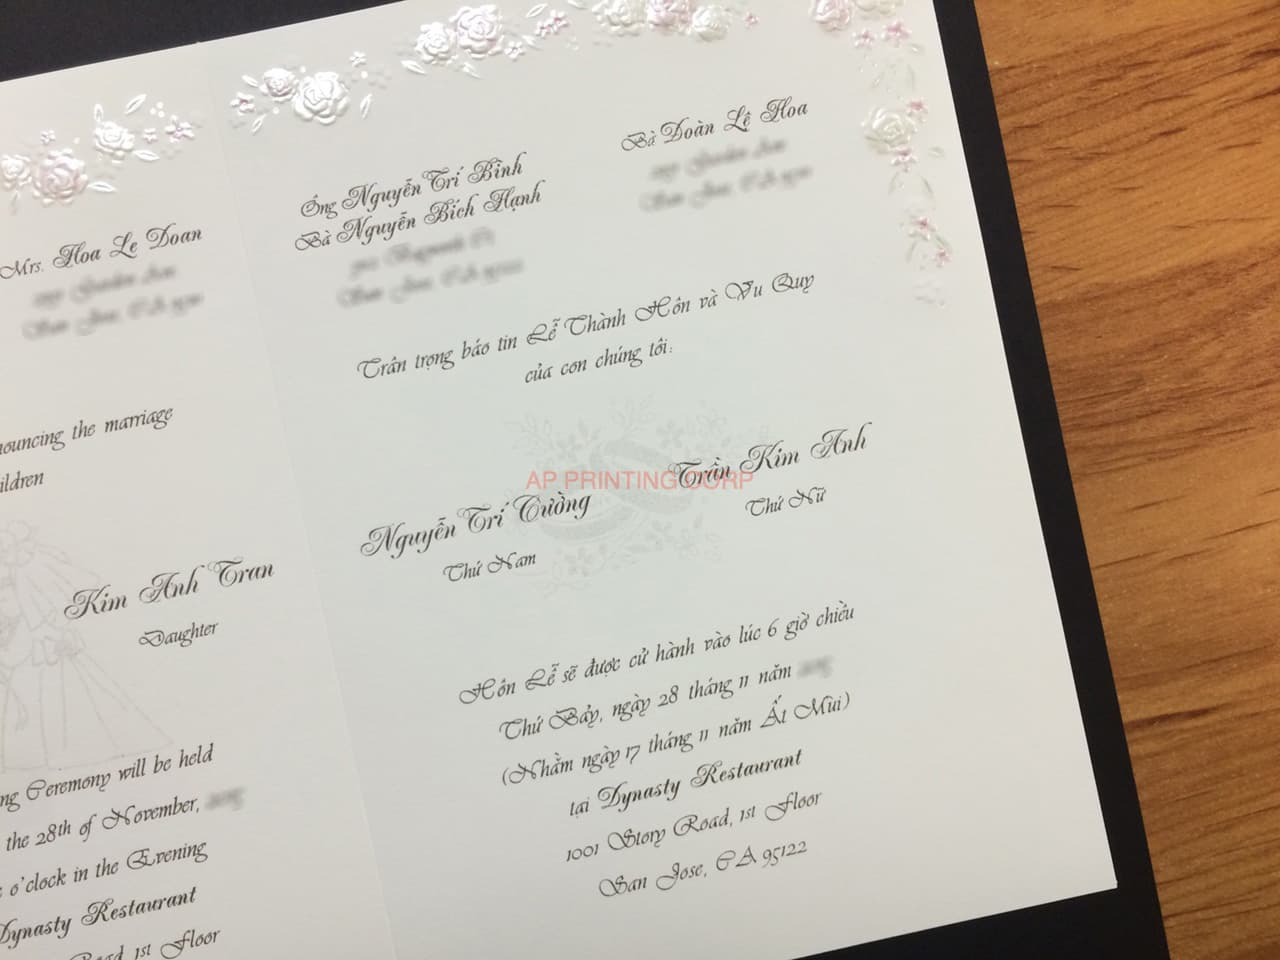 Mrs. Hoa Le Doan
nouncing the marriage
ildren
Kim Anh Tran
Daughter
ng Ceremony will be held
the 28th of November,
o'clock in the Evening
Dynasty Restaurant
Road, 1st Floor
Ông Nguyễn Trí Bình
Bà Nguyễn Bích Hạnh
Bà Đoàn Lệ Hoa
Trân trọng báo tin Lễ Thành Hôn và Vu Quy
của con chúng tôi:
AP PRINTING CORP
Nguyễn Trí Cường
Thứ Nam
Trần Kim Anh
Thứ Nữ
Hôn Lễ sẽ được cử hành vào lúc 6 giờ chiều
Thứ Bảy, ngày 28 tháng 11 năm
(Nhằm ngày 17 tháng 11 năm Ất Mùi)
tại Dynasty Restaurant
1001 Story Road, 1st Floor
San Jose, CA 95122